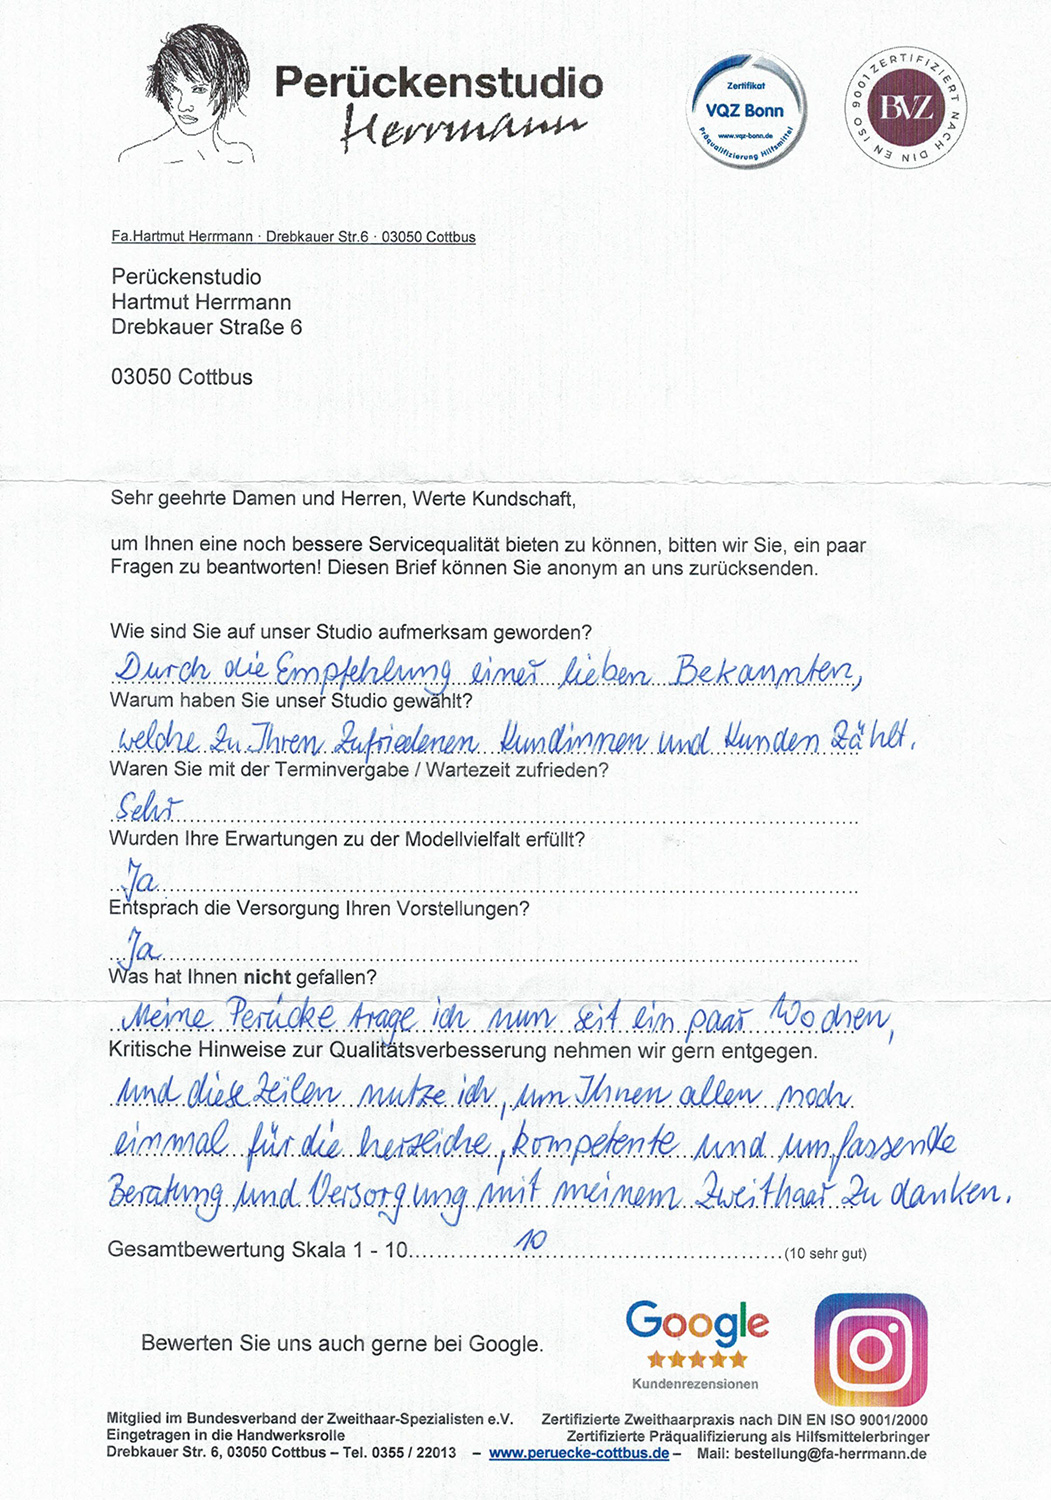 Perückenstudio
Herrmann
Zertifikat
VQZ Bonn
www.vqz-bonn.de
Präqualifizierung Hilfsmittel
ZERTIFIZIERT NACH DIN EN ISO 9001
BVZ
Fa.Hartmut Herrmann · Drebkauer Str.6 · 03050 Cottbus
Perückenstudio
Hartmut Herrmann
Drebkauer Straße 6
03050 Cottbus
Sehr geehrte Damen und Herren, Werte Kundschaft,
um Ihnen eine noch bessere Servicequalität bieten zu können, bitten wir Sie, ein paar
Fragen zu beantworten! Diesen Brief können Sie anonym an uns zurücksenden.
Wie sind Sie auf unser Studio aufmerksam geworden?
Durch die Empfehlung einer lieben Bekannten,
Warum haben Sie unser Studio gewählt?
welche zu Ihren zufriedenen Kundinnen und Kunden zählt.
Waren Sie mit der Terminvergabe / Wartezeit zufrieden?
Sehr
Wurden Ihre Erwartungen zu der Modellvielfalt erfüllt?
Ja
Entsprach die Versorgung Ihren Vorstellungen?
Ja
Was hat Ihnen nicht gefallen?
Meine Perücke trage ich nun seit ein paar Wochen,
Kritische Hinweise zur Qualitätsverbesserung nehmen wir gern entgegen.
und diese Zeilen nutze ich, um Ihnen allen noch
einmal für die herzliche, kompetente und umfassende
Beratung und Versorgung mit meinem Zweithaar zu danken.
Gesamtbewertung Skala 1 - 10.......10.......(10 sehr gut)
Bewerten Sie uns auch gerne bei Google.
Google
Kundenrezensionen
Mitglied im Bundesverband der Zweithaar-Spezialisten e.V. Zertifizierte Zweithaarpraxis nach DIN EN ISO 9001/2000
Eingetragen in die Handwerksrolle Zertifizierte Präqualifizierung als Hilfsmittelerbringer
Drebkauer Str. 6, 03050 Cottbus – Tel. 0355 / 22013 – www.peruecke-cottbus.de – Mail: bestellung@fa-herrmann.de